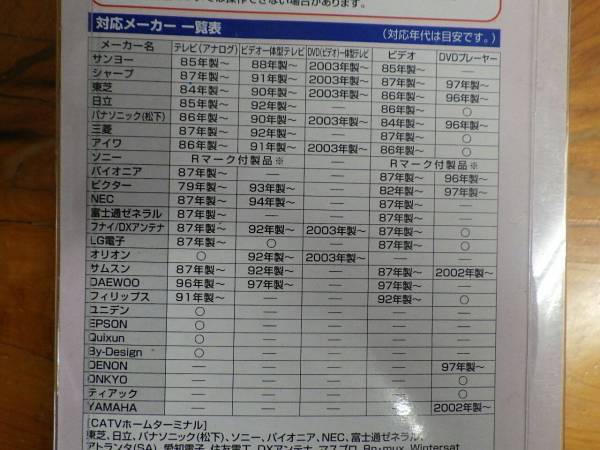 は操作できない場合があります。
対応メーカー 一覧表 （対応年代は目安です。）
メーカー名 テレビ(アナログ) ビデオ一体型テレビ DVD(ビデオ)一体型テレビ ビデオ DVDプレーヤー
サンヨー 85年製〜 88年製〜 2003年製〜 85年製〜 —
シャープ 87年製〜 91年製〜 2003年製〜 87年製〜 97年製〜
東芝 84年製〜 90年製〜 2003年製〜 86年製〜 96年製〜
日立 85年製〜 92年製〜 — 86年製〜 ○
パナソニック(松下) 86年製〜 90年製〜 2003年製〜 84年製〜 96年製〜
三菱 87年製〜 92年製〜 — 87年製〜 ○
アイワ 86年製〜 91年製〜 2003年製〜 86年製〜 ○
ソニー Rマーク付製品※ — Rマーク付製品※
パイオニア 87年製〜 — — 87年製〜 96年製〜
ビクター 79年製〜 93年製〜 — 82年製〜 97年製〜
NEC 87年製〜 94年製〜 — 87年製〜 —
富士通ゼネラル 87年製〜 — — 87年製〜 —
フナイ/DXアンテナ 87年製〜 92年製〜 2003年製〜 87年製〜 ○
LG電子 87年製〜 ○ — 87年製〜 ○
オリオン ○ 92年製〜 2003年製〜 — —
サムスン 87年製〜 92年製〜 — 87年製〜 2002年製〜
DAEWOO 96年製〜 97年製〜 — 97年製〜 —
フィリップス 91年製〜 — — 92年製〜 ○
ユニデン ○ — — — —
EPSON ○ — — — —
Quixun ○ — — — —
By-Design ○ — — — —
DENON — — — — 97年製〜
ONKYO — — — — ○
ティアック — — — — ○
YAMAHA — — — — 2002年製〜
[CATVホームターミナル]
東芝、日立、パナソニック(松下)、ソニー、パイオニア、NEC、富士通ゼネラル、
アトランタ(SA)、愛知電子、住友電工、DXアンテナ、マスプロ、